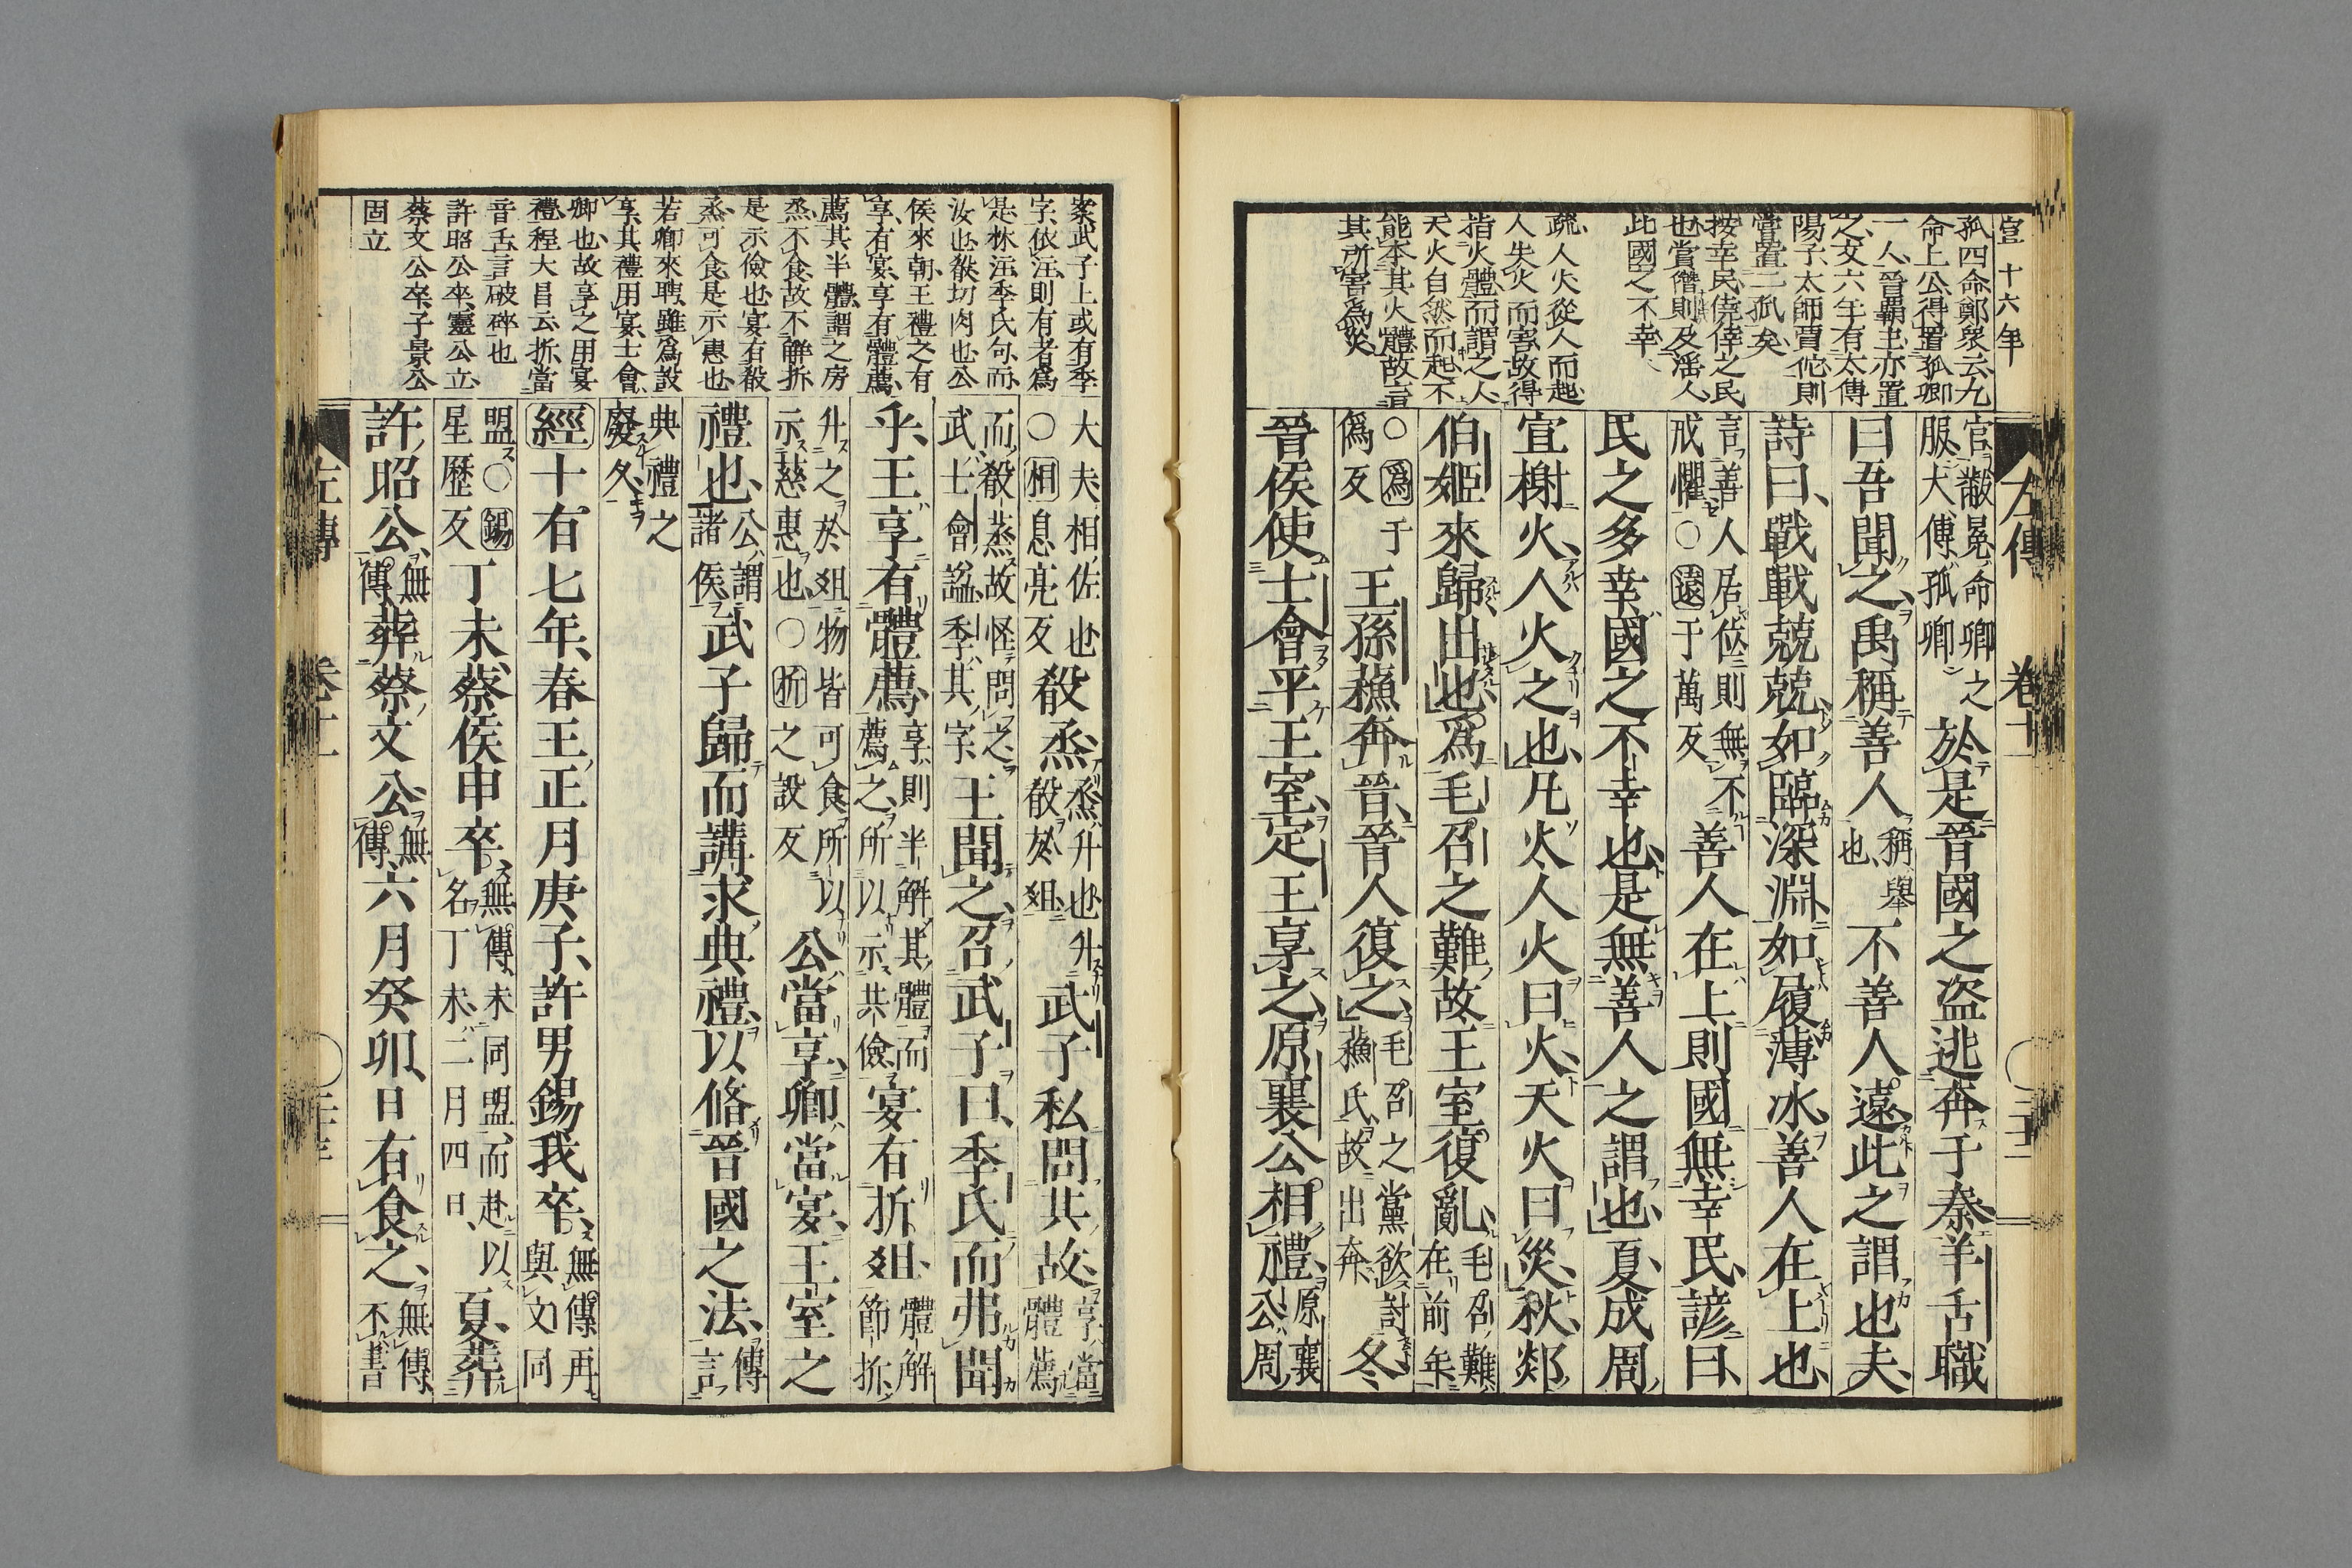 宣十六年
孤四命鄭衆云九
命上公得置孤卿
一人晉霸主亦置
之文六年有太傅
陽子太師賈佗則
嘗置二孤矣
按幸民僥倖之民
也賞僭則及淫人
此國之不幸
疏人火從人而起
人失火而害故得
指火體而謂之人
天火自然而起不
能本其火體故言
其所害爲災
左傳 卷十一
官黻冕命卿之服大傅孤卿於是晉國之盜逃奔于秦羊舌職
曰吾聞之禹稱善人稱舉也不善人遠此之謂也夫
詩曰戰戰兢兢如臨深淵如履薄冰善人在上也
言善人居位則無不戒懼○遠于萬反善人在上則國無幸民諺曰
民之多幸國之不幸也是無善人之謂也夏成周
宣榭火人火之也凡火人火曰火天火曰災秋郯
伯姬來歸出也爲毛召之難故王室復亂毛召難在前年
○爲于僞反王孫蘇奔晉晉人復之毛召之黨欲討蘇氏故出奔冬
晉侯使士會平王室定王享之原襄公相禮原襄公周
案武子上或有季
字依注則有者爲
是林注季氏句而
汝也殽切肉也公
侯來朝王禮之有
享有宴享有體薦
薦其半體謂之房
烝不食故不解折
是示儉也宴有殽
烝可食是示惠也
若卿來聘雖爲設
享其禮用宴士會
卿也故享之用宴
禮程大昌云折當
音舌言破碎也
許昭公卒靈公立
蔡文公卒子景公
固立
大夫相佐也○相息亮反殽烝烝升也升殽於俎武子私問其故享當體薦
而殽蒸故怪問之武士會諡季其字王聞之召武子曰季氏而弗聞
乎王享有體薦享則半解其體而薦之所以示共儉宴有折俎體解節折
升之於俎物皆可食所以示慈惠也○折之設反公當享卿當宴王室之
禮也公謂諸侯武子歸而講求典禮以脩晉國之法傳言
典禮之廢久
經十有七年春王正月庚子許男錫我卒無傳再與文同
盟○錫星歷反丁未蔡侯申卒無傳未同盟而赴以名丁未二月四日夏葬
許昭公無傳葬蔡文公無傳六月癸卯日有食之無傳不書
左傳 卷十一